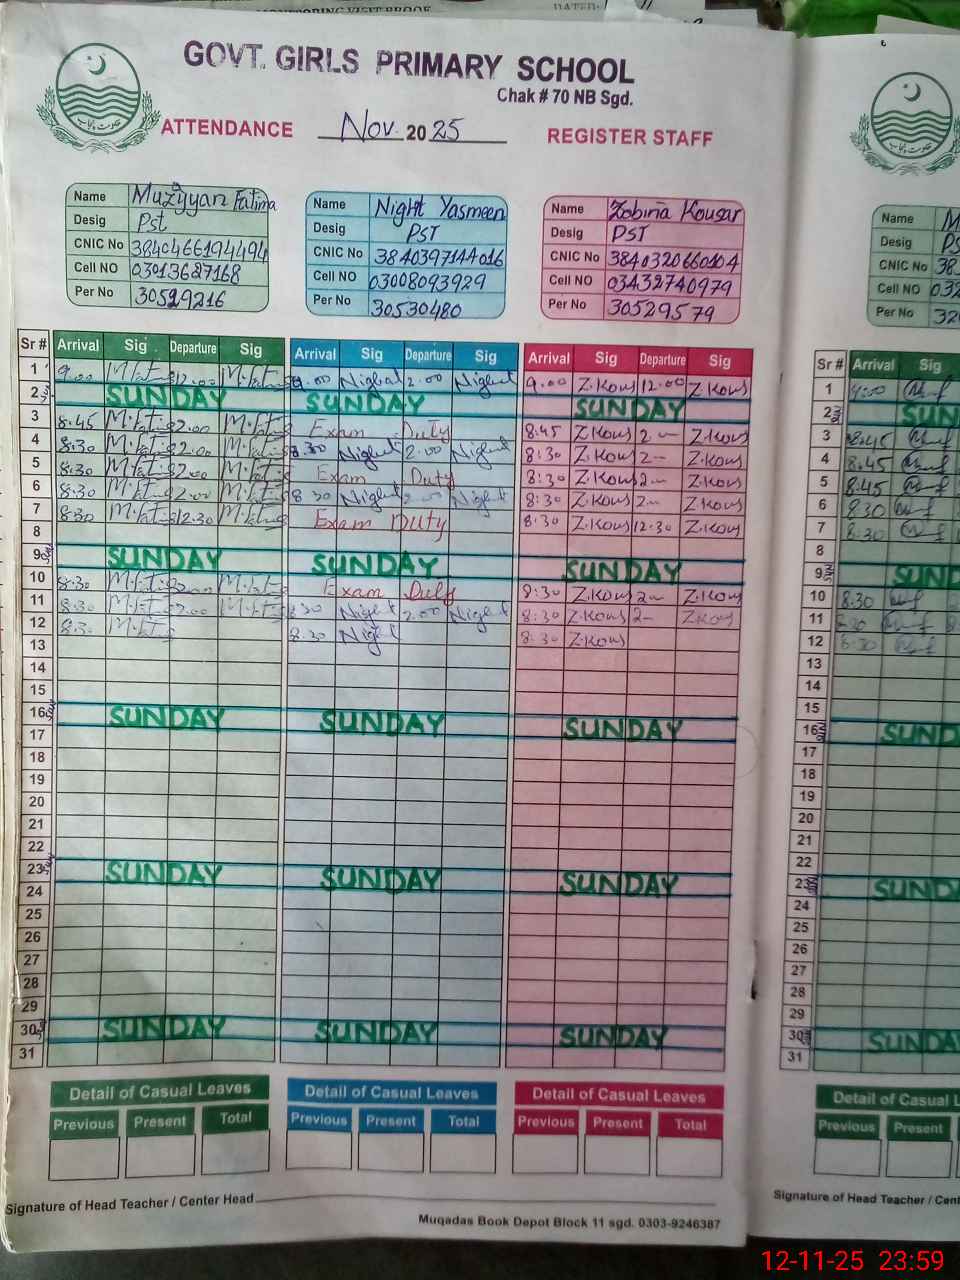 MONITORING VISIT PROOF
DATED:
GOVT. GIRLS PRIMARY SCHOOL
Chak # 70 NB Sgd.
ATTENDANCE Nov. 2025 REGISTER STAFF
Name Muzyyan Fatima
Desig Pst
CNIC No 3840466194494
Cell NO 03013687168
Per No 30529216
Name Night Yasmeen
Desig PST
CNIC No 3840397144016
Cell NO 03008093929
Per No 30530480
Name Zobiria Kousar
Desig PST
CNIC No 3840320660104
Cell NO 03432740979
Per No 30529579
Name
Desig
CNIC No
Cell NO
Per No
Sr # Arrival Sig Departure Sig Arrival Sig Departure Sig Arrival Sig Departure Sig Sr # Arrival Sig
1 9.00 12.00 9.00 Z.Kous 12.00 Z Kous 1 9:00
2 SUNDAY SUNDAY SUNDAY 2 SUND
3 8.45 2.00 Exam Duty 8:45 Z.Kous 2 Z.Kous 3 8.45
4 8:30 2.00 8.30 Night 2.00 Night 8:30 Z.Kous 2 Z.Kous 4 8.45
5 8:30 2.00 Exam Duty 8:30 Z.Kous 2 Z.Kous 5 8.45
6 8:30 2.00 8 30 Night 2.00 Night 8:30 Z.Kous 2 Z.Kous 6 8.30
7 8:30 12.30 Exam Duty 8:30 Z.Kous 12.30 Z.Kous 7 8.30
8 8
9 SUNDAY SUNDAY SUNDAY 9 SUND
10 8:30 2.00 Exam Duty 8:30 Z.Kous 2 Z.Kous 10 8.30
11 8:30 2.00 Night 2.00 Night 8:30 Z.Kous 2 Z.Kous 11 8.30
12 8:30 8:30 Night 8:30 Z.Kous 12 8:30
13 13
14 14
15 15
16 SUNDAY SUNDAY SUNDAY 16 SUND
17 17
18 18
19 19
20 20
21 21
22 22
23 SUNDAY SUNDAY SUNDAY 23 SUNDA
24 24
25 25
26 26
27 27
28 28
29 29
30 SUNDAY SUNDAY SUNDAY 30 SUNDA
31 31
Detail of Casual Leaves Detail of Casual Leaves Detail of Casual Leaves Detail of Casual L
Previous Present Total Previous Present Total Previous Present Total Previous Present
Signature of Head Teacher / Center Head
Signature of Head Teacher / Cent
Muqadas Book Depot Block 11 sgd. 0303-9246387
12-11-25 23:59